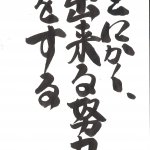 とにかく、
出来る努力
をする